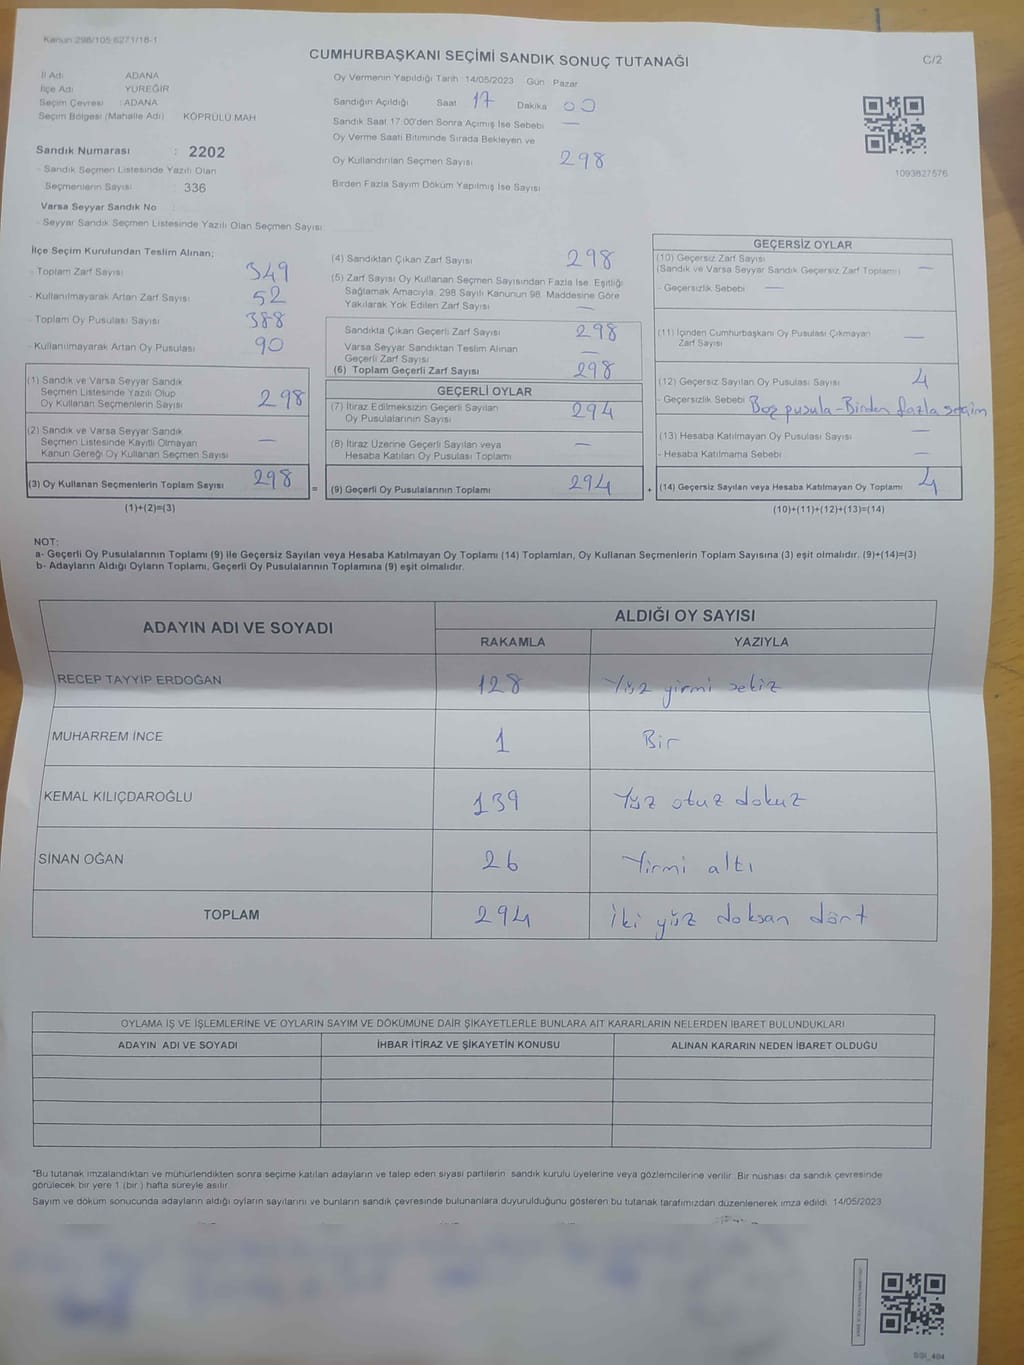 Kanun 298/105 6271/18-1
CUMHURBAŞKANI SEÇİMİ SANDIK SONUÇ TUTANAĞI
C/2
İl Adı ADANA
İlçe Adı YÜREĞİR
Seçim Çevresi : ADANA
Seçim Bölgesi (Mahalle Adı) KÖPRÜLÜ MAH
Sandık Numarası : 2202
- Sandık Seçmen Listesinde Yazılı Olan
Seçmenlerin Sayısı : 336
Varsa Seyyar Sandık No
- Seyyar Sandık Seçmen Listesinde Yazılı Olan Seçmen Sayısı
Oy Vermenin Yapıldığı Tarih 14/05/2023 Gün Pazar
Sandığın Açıldığı Saat 17 Dakika 00
Sandık Saat 17:00'den Sonra Açımış İse Sebebi —
Oy Verme Saati Bitiminde Sırada Bekleyen ve
Oy Kullandırılan Seçmen Sayısı 298
Birden Fazla Sayım Döküm Yapılmış İse Sayısı
1093827576
İlçe Seçim Kurulundan Teslim Alınan;
- Toplam Zarf Sayısı 349
- Kullanılmayarak Artan Zarf Sayısı 52
- Toplam Oy Pusulası Sayısı 388
- Kullanılmayarak Artan Oy Pusulası 90
(1) Sandık ve Varsa Seyyar Sandık
Seçmen Listesinde Yazılı Olup
Oy Kullanan Seçmenlerin Sayısı 298
(2) Sandık ve Varsa Seyyar Sandık
Seçmen Listesinde Kayıtlı Olmayan
Kanun Gereği Oy Kullanan Seçmen Sayısı —
(3) Oy Kullanan Seçmenlerin Toplam Sayısı 298
(1)+(2)=(3)
(4) Sandıktan Çıkan Zarf Sayısı 298
(5) Zarf Sayısı Oy Kullanan Seçmen Sayısından Fazla İse Eşitliği
Sağlamak Amacıyla, 298 Sayılı Kanunun 98. Maddesine Göre
Yakılarak Yok Edilen Zarf Sayısı —
Sandıkta Çıkan Geçerli Zarf Sayısı 298
Varsa Seyyar Sandıktan Teslim Alınan
Geçerli Zarf Sayısı —
(6) Toplam Geçerli Zarf Sayısı 298
GEÇERLİ OYLAR
(7) İtiraz Edilmeksizin Geçerli Sayılan
Oy Pusulalarının Sayısı 294
(8) İtiraz Üzerine Geçerli Sayılan veya
Hesaba Katılan Oy Pusulası Toplamı —
= (9) Geçerli Oy Pusulalarının Toplamı 294
GEÇERSİZ OYLAR
(10) Geçersiz Zarf Sayısı
(Sandık ve Varsa Seyyar Sandık Geçersiz Zarf Toplamı) —
- Geçersizlik Sebebi —
(11) İçinden Cumhurbaşkanı Oy Pusulası Çıkmayan
Zarf Sayısı —
(12) Geçersiz Sayılan Oy Pusulası Sayısı 4
- Geçersizlik Sebebi Boş pusula - Birden fazla seçim
(13) Hesaba Katılmayan Oy Pusulası Sayısı —
- Hesaba Katılmama Sebebi —
+ (14) Geçersiz Sayılan veya Hesaba Katılmayan Oy Toplamı 4
(10)+(11)+(12)+(13)=(14)
NOT:
a- Geçerli Oy Pusulalarının Toplamı (9) ile Geçersiz Sayılan veya Hesaba Katılmayan Oy Toplamı (14) Toplamları, Oy Kullanan Seçmenlerin Toplam Sayısına (3) eşit olmalıdır. (9)+(14)=(3)
b- Adayların Aldığı Oyların Toplamı, Geçerli Oy Pusulalarının Toplamına (9) eşit olmalıdır.
ADAYIN ADI VE SOYADI
ALDIĞI OY SAYISI
RAKAMLA YAZIYLA
RECEP TAYYİP ERDOĞAN 128 Yüz yirmi sekiz
MUHARREM İNCE 1 Bir
KEMAL KILIÇDAROĞLU 139 Yüz otuz dokuz
SİNAN OĞAN 26 Yirmi altı
TOPLAM 294 İki yüz doksan dört
OYLAMA İŞ VE İŞLEMLERİNE VE OYLARIN SAYIM VE DÖKÜMÜNE DAİR ŞİKAYETLERLE BUNLARA AİT KARARLARIN NELERDEN İBARET BULUNDUKLARI
ADAYIN ADI VE SOYADI İHBAR İTİRAZ VE ŞİKAYETİN KONUSU ALINAN KARARIN NEDEN İBARET OLDUĞU
*Bu tutanak imzalandıktan ve mühürlendikten sonra seçime katılan adayların ve talep eden siyasi partilerin sandık kurulu üyelerine veya gözlemcilerine verilir. Bir nüshası da sandık çevresinde
görülecek bir yere 1 (bir) hafta süreyle asılır.
Sayım ve döküm sonucunda adayların aldığı oyların sayılarını ve bunların sandık çevresinde bulunanlara duyurulduğunu gösteren bu tutanak tarafımızdan düzenlenerek imza edildi. 14/05/2023